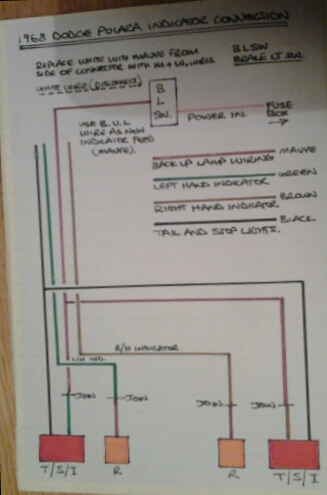 1968 DODGE POLARA INDICATOR CONVERSION
REPLACE WHITE WITH MAUVE FROM
SIDE OF CONNECTOR WITH
WHITE WIRE (DISCONNECT)
B L SW
BRAKE LT SW.
B
L
SW.
POWER IN.
FUSE
BOX
USE B.U.L
WIRE AS NEW
INDICATOR FEED
(MAUVE).
BACK UP LAMP WIRING MAUVE
LEFT HAND INDICATOR GREEN
RIGHT HAND INDICATOR BROWN
TAIL AND STOP LIGHTS. BLACK
R/H INDICATOR
L/H IND.
JOIN
JOIN
JOIN
JOIN
T/S/I
R
R
T/S/I